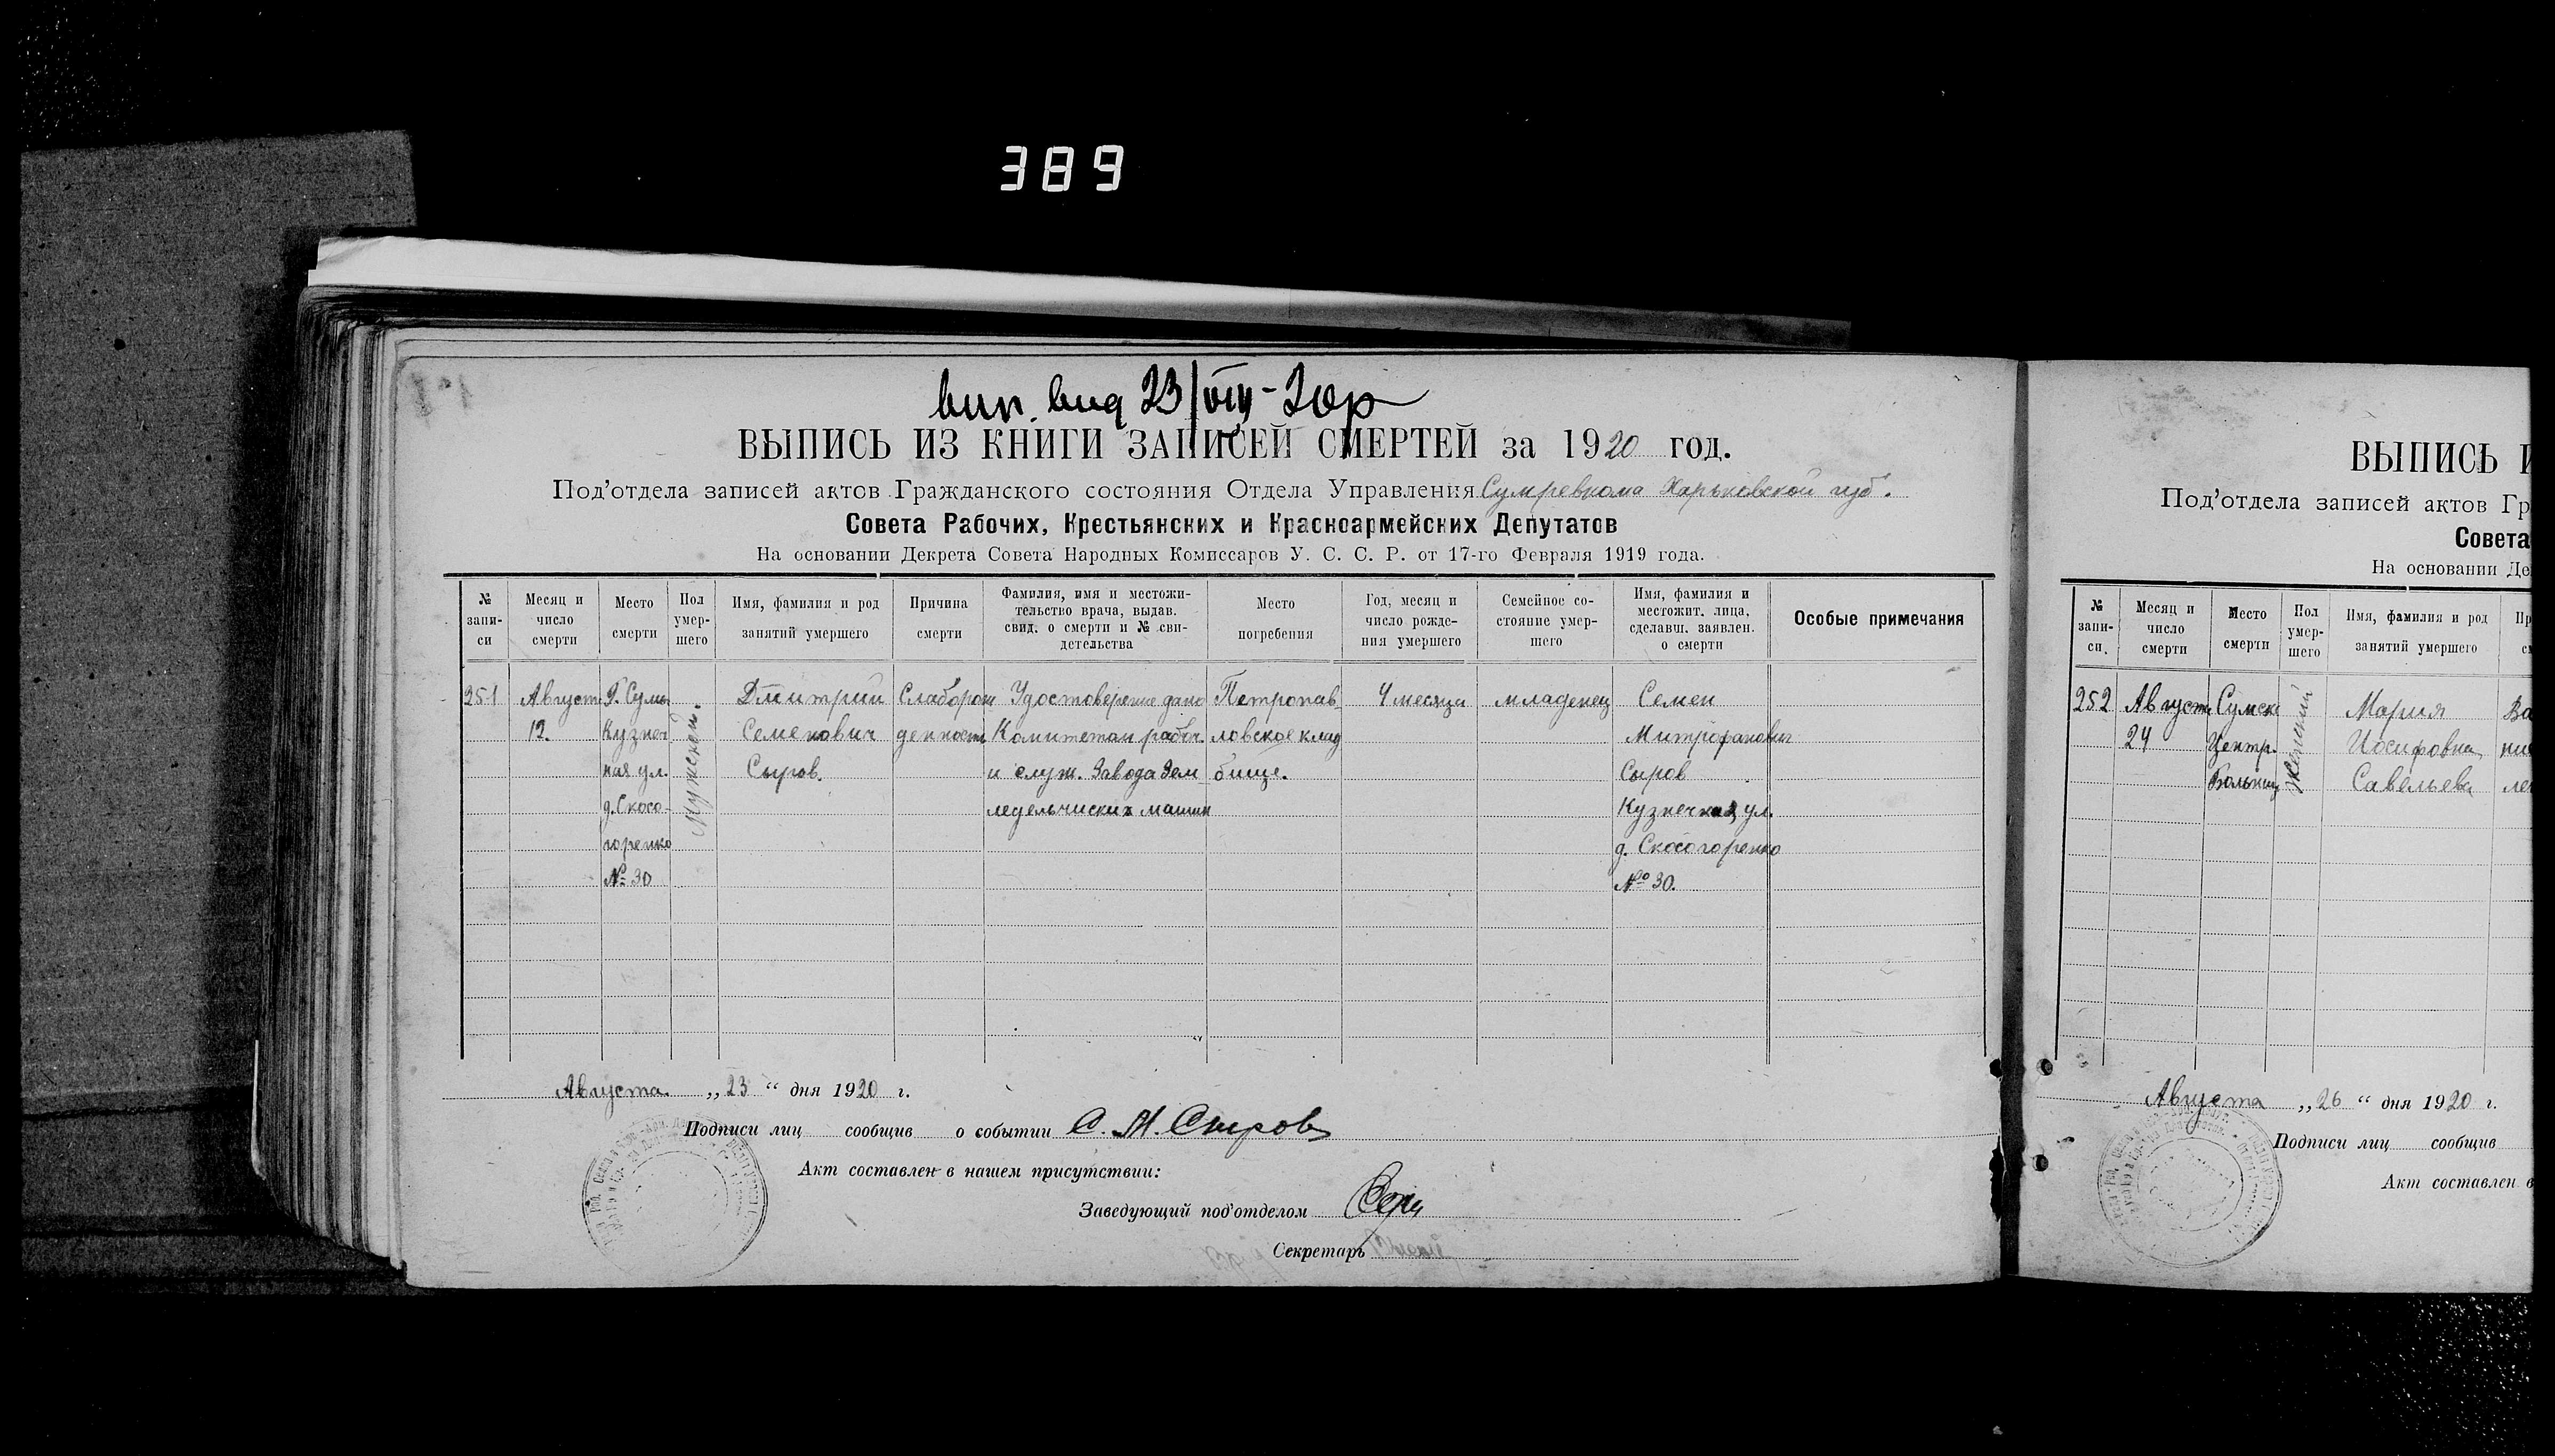 389
вип. вид 23/VIII-20р
ВЫПИСЬ ИЗ КНИГИ ЗАПИСЕЙ СМЕРТЕЙ за 1920 год.
Под'отдела записей актов Гражданского состояния Отдела Управления Сумревкома Харьковской губ.
Совета Рабочих, Крестьянских и Красноармейских Депутатов
На основании Декрета Совета Народных Комиссаров У. С. С. Р. от 17-го Февраля 1919 года.
№ запи-си
Месяц и число смерти
Место смерти
Пол умер-шего
Имя, фамилия и род занятий умершего
Причина смерти
Фамилия, имя и местожи-тельство врача, выдав. свид. о смерти и № сви-детельства
Место погребения
Год, месяц и число рожде-ния умершего
Семейное со-стояние умер-шего
Имя, фамилия и местожит. лица, сделавш. заявлен. о смерти
Особые примечания
251
Август
12.
Г. Сумы
Кузнеч
ная ул.
д. Скосо-
горенко
№ 30
Мужской.
Дмитрий
Семенович
Сыров.
Слаборож
денность
Удостоверение дано
Комитетом рабоч.
и служ. Завода Зем
ледельческих машин
Петропав
ловское клад
бище.
4 месяца
младенец
Семен
Митрофанович
Сыров
Кузнечная ул.
д. Скосогоренко
№ 30.
Августа „23“ дня 1920 г.
Подписи лиц сообщив о событии С. М. Сыров
Акт составлен в нашем присутствии:
Заведующий под'отделом
Секретарь
ВЫПИСЬ И
Под'отдела записей актов Гр
Совета
На основании Де
№ запи-си.
Месяц и число смерти
Место смерти
Пол умер-шего
Имя, фамилия и род занятий умершего
252
Август
24
Сумск
Центр.
Больниц
Женский
Мария
Иосифовна
Савельева
Августа „26“ дня 1920 г.
Подписи лиц сообщив
Акт составлен в